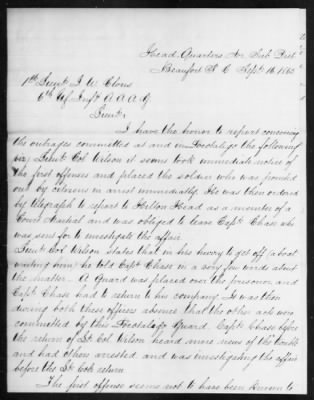 Head Quarters
Beaufort S. C. Sept. 16. 1865
1st Lieut J. W. Clous
6th Inft A A A G
Lieut.
I have the honor to report concerning
the outrages committed at and on the following
Lieut Col Wilson it seems took immediate notice of
the first offenses and placed the soldier who was pointed
out by citizens in arrest immediately. He was then ordered
by telegraph to report to Hilton Head as a member of a
Court Martial and was obliged to leave Capt Chase who
was sent for to investigate the affair
Lieut Col Wilson states that in his hurry to get off (a boat
waiting him) he told Capt Chase in a very few words about
the matter. A guard was placed over the prisoner and
Capt Chase had to return to his company. It was then
during both these officers absence that the other acts were
committed by this Guard. Capt Chase before
the return of Lt Col Wilson heard more news of the trouble
and had others arrested and was investigating the affair
before the Lt Cols return
The first offense seems not to have been known to